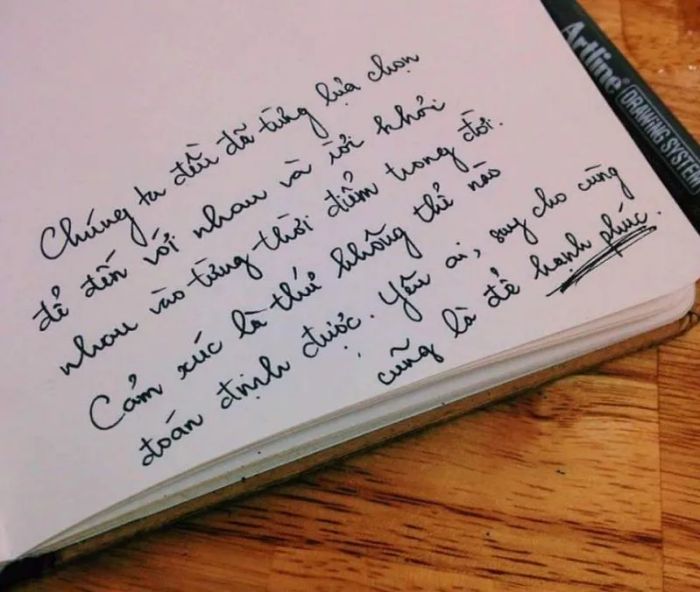 Chúng ta đều đã từng lựa chọn
để đến với nhau và rời khỏi
nhau vào từng thời điểm trong đời.
Cảm xúc là thứ không thể nào
đoán định được. Yêu ai, suy cho cùng
cũng là để hạnh phúc.
Artline DRAWING SYSTEM